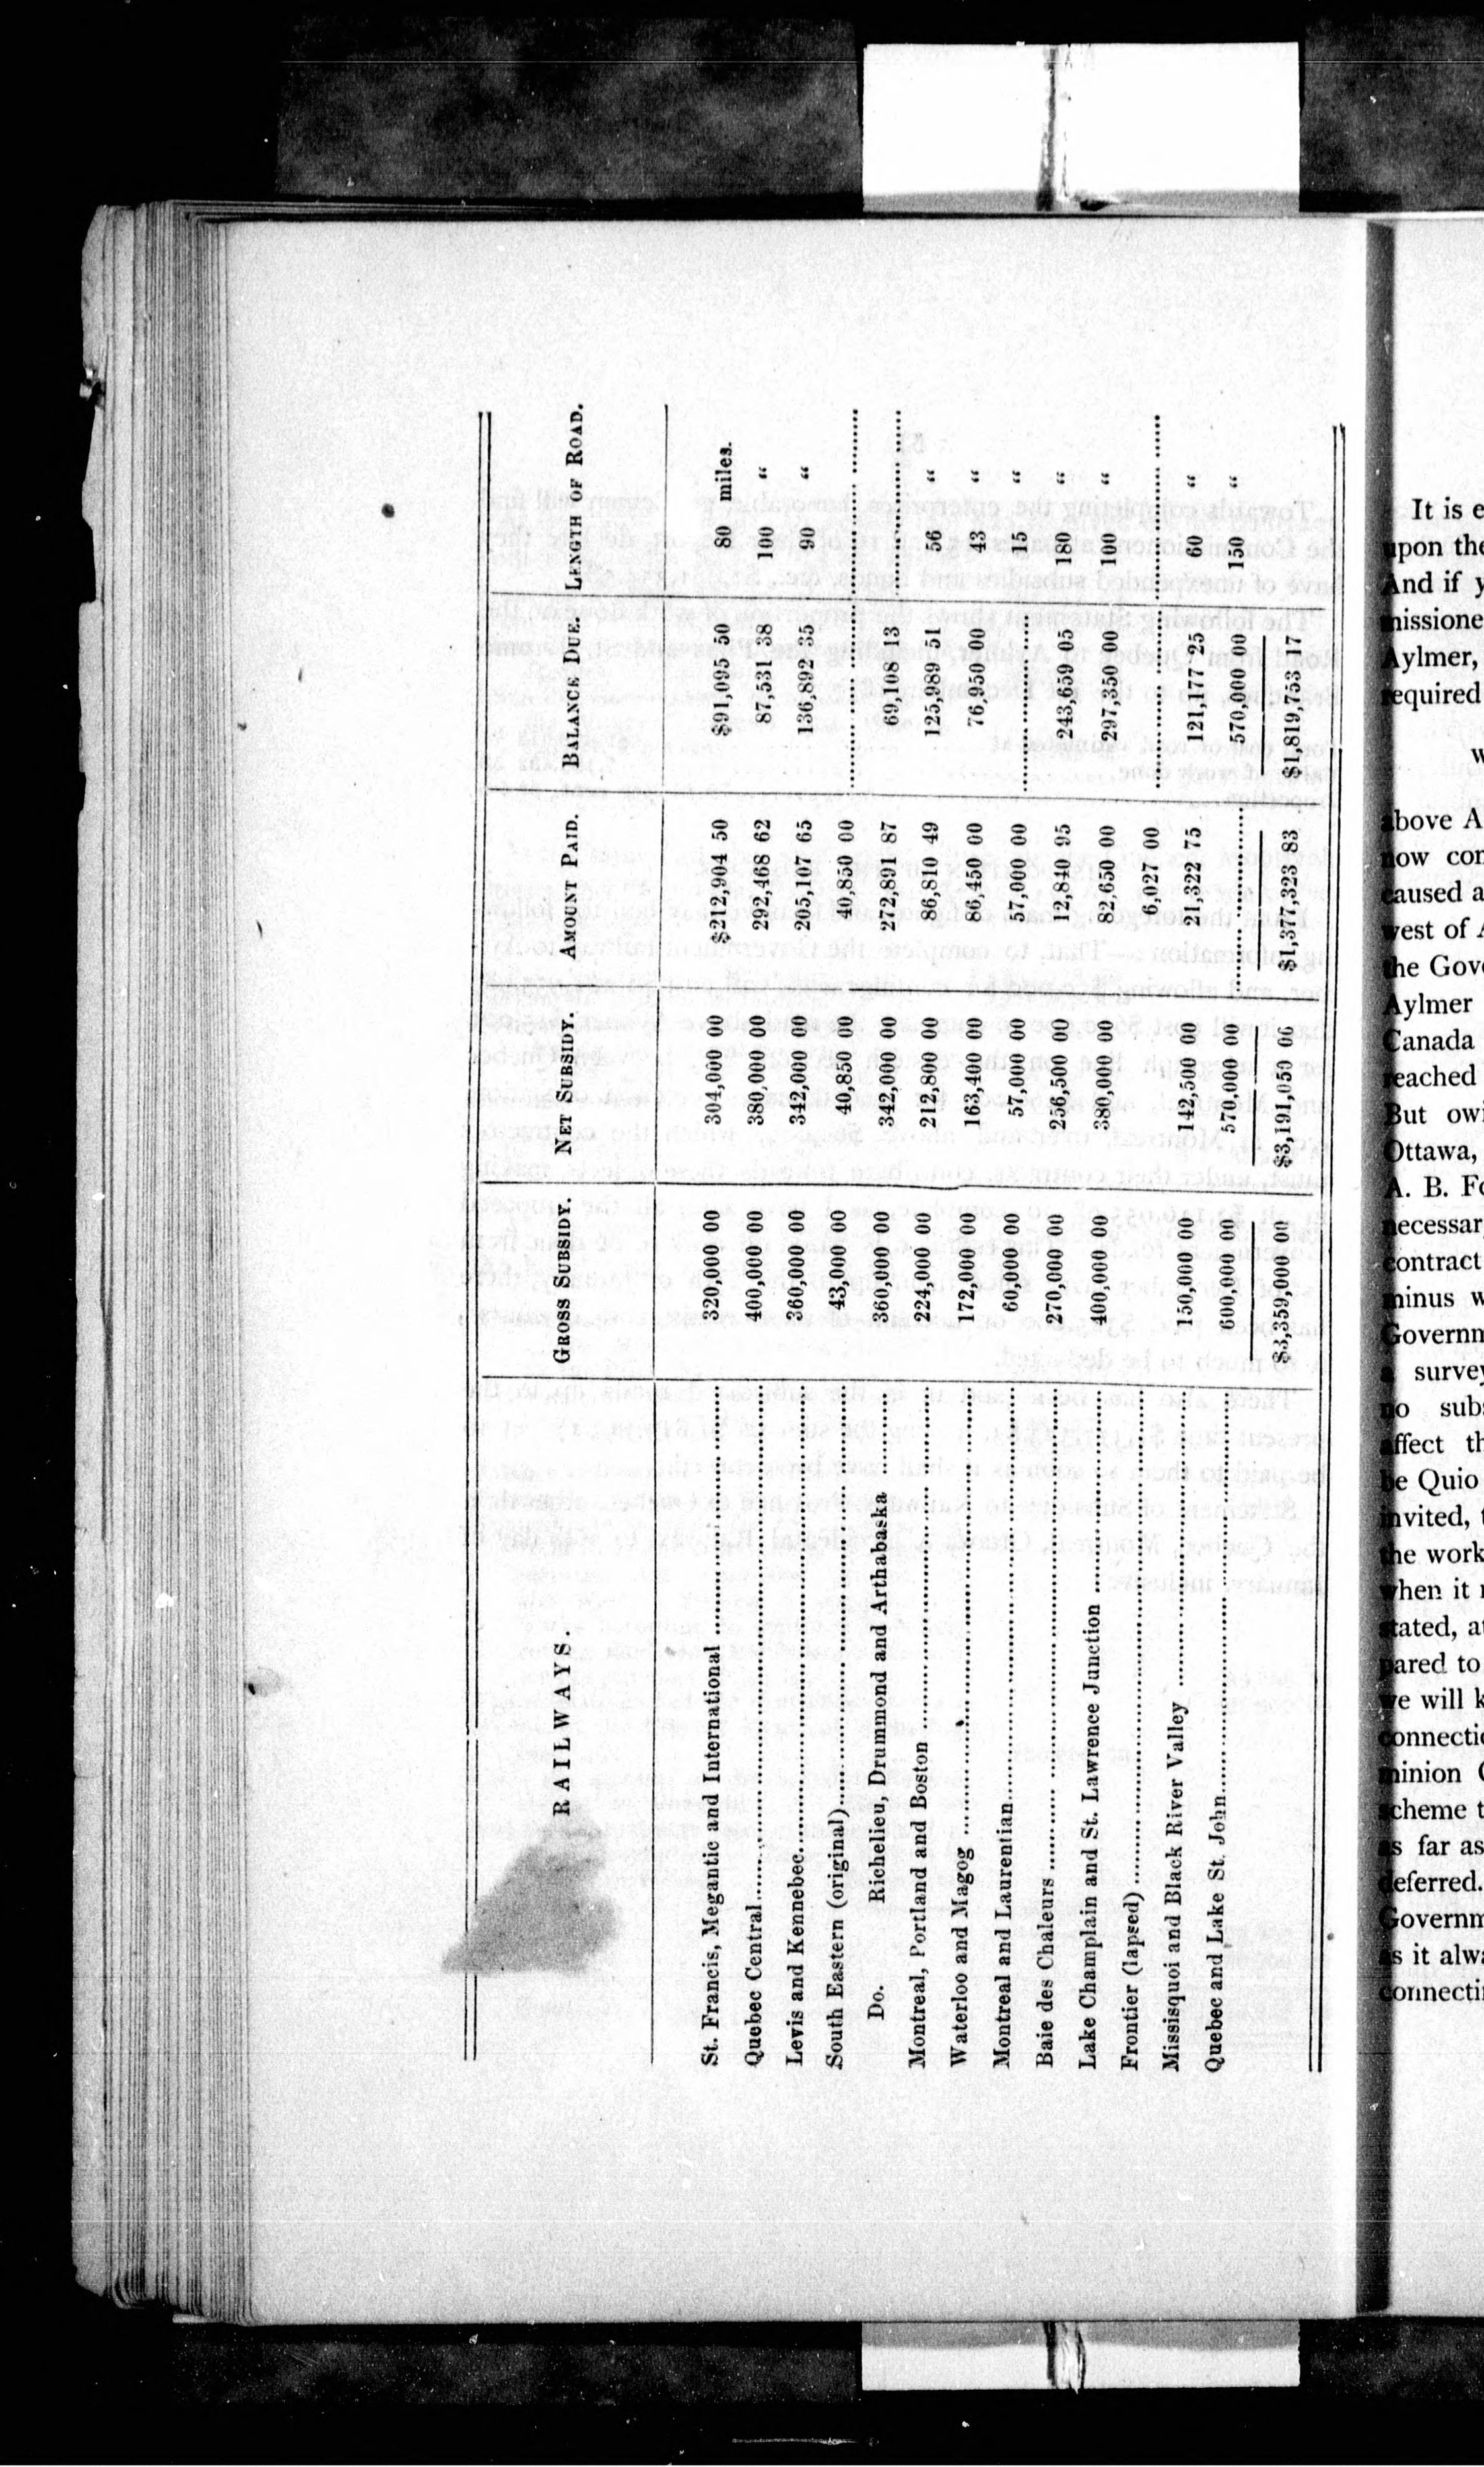 RAILWAYS GROSS SUBSIDY. NET SUBSIDY. AMOUNT PAID. BALANCE DUE. LENGTH OF ROAD.
St. Francis, Megantic and International 320,000 00 304,000 00 $212,904 50 $91,095 50 80 miles.
Quebec Central 400,000 00 380,000 00 292,468 62 87,531 38 100 "
Levis and Kennebec 360,000 00 342,000 00 205,107 65 136,892 35 90 "
South Eastern (original) 43,000 00 40,850 00 40,850 00
Do. Richelieu, Drummond and Arthabaska 360,000 00 342,000 00 272,891 87 69,108 13
Montreal, Portland and Boston 224,000 00 212,800 00 86,810 49 125,989 51 56 "
Waterloo and Magog 172,000 00 163,400 00 86,450 00 76,950 00 43 "
Montreal and Laurentian 60,000 00 57,000 00 57,000 00 15 "
Baie des Chaleurs 270,000 00 256,500 00 12,840 95 243,659 05 180 "
Lake Champlain and St. Lawrence Junction 400,000 00 380,000 00 82,650 00 297,350 00 100 "
Frontier (lapsed) 6,027 00
Missisquoi and Black River Valley 150,000 00 142,500 00 21,322 75 121,177 25 60 "
Quebec and Lake St. John 600,000 00 570,000 00 570,000 00 150 "
$3,359,000 00 $3,191,050 00 $1,377,323 83 $1,819,753 17
It is
upon the
And if
missione
Aylmer,
required
above A
now con
caused a
west of
the Gov
Aylmer
Canada
reached
But owi
Ottawa,
A. B. Fo
necessar
contract
minus w
Governm
a survey
no subs
affect th
be Quio
invited,
the work
when it
stated, a
pared to
we will k
connectio
minion
scheme t
as far as
deferred.
Governm
as it alwa
connecti